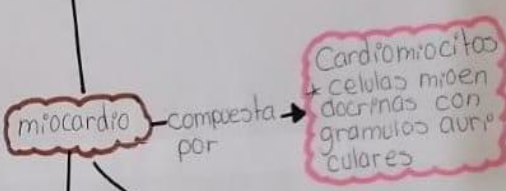 miocardio
compuesta
por
Cardiomiocitos
* celulas mioen
docrinas con
gramulos auri
culares